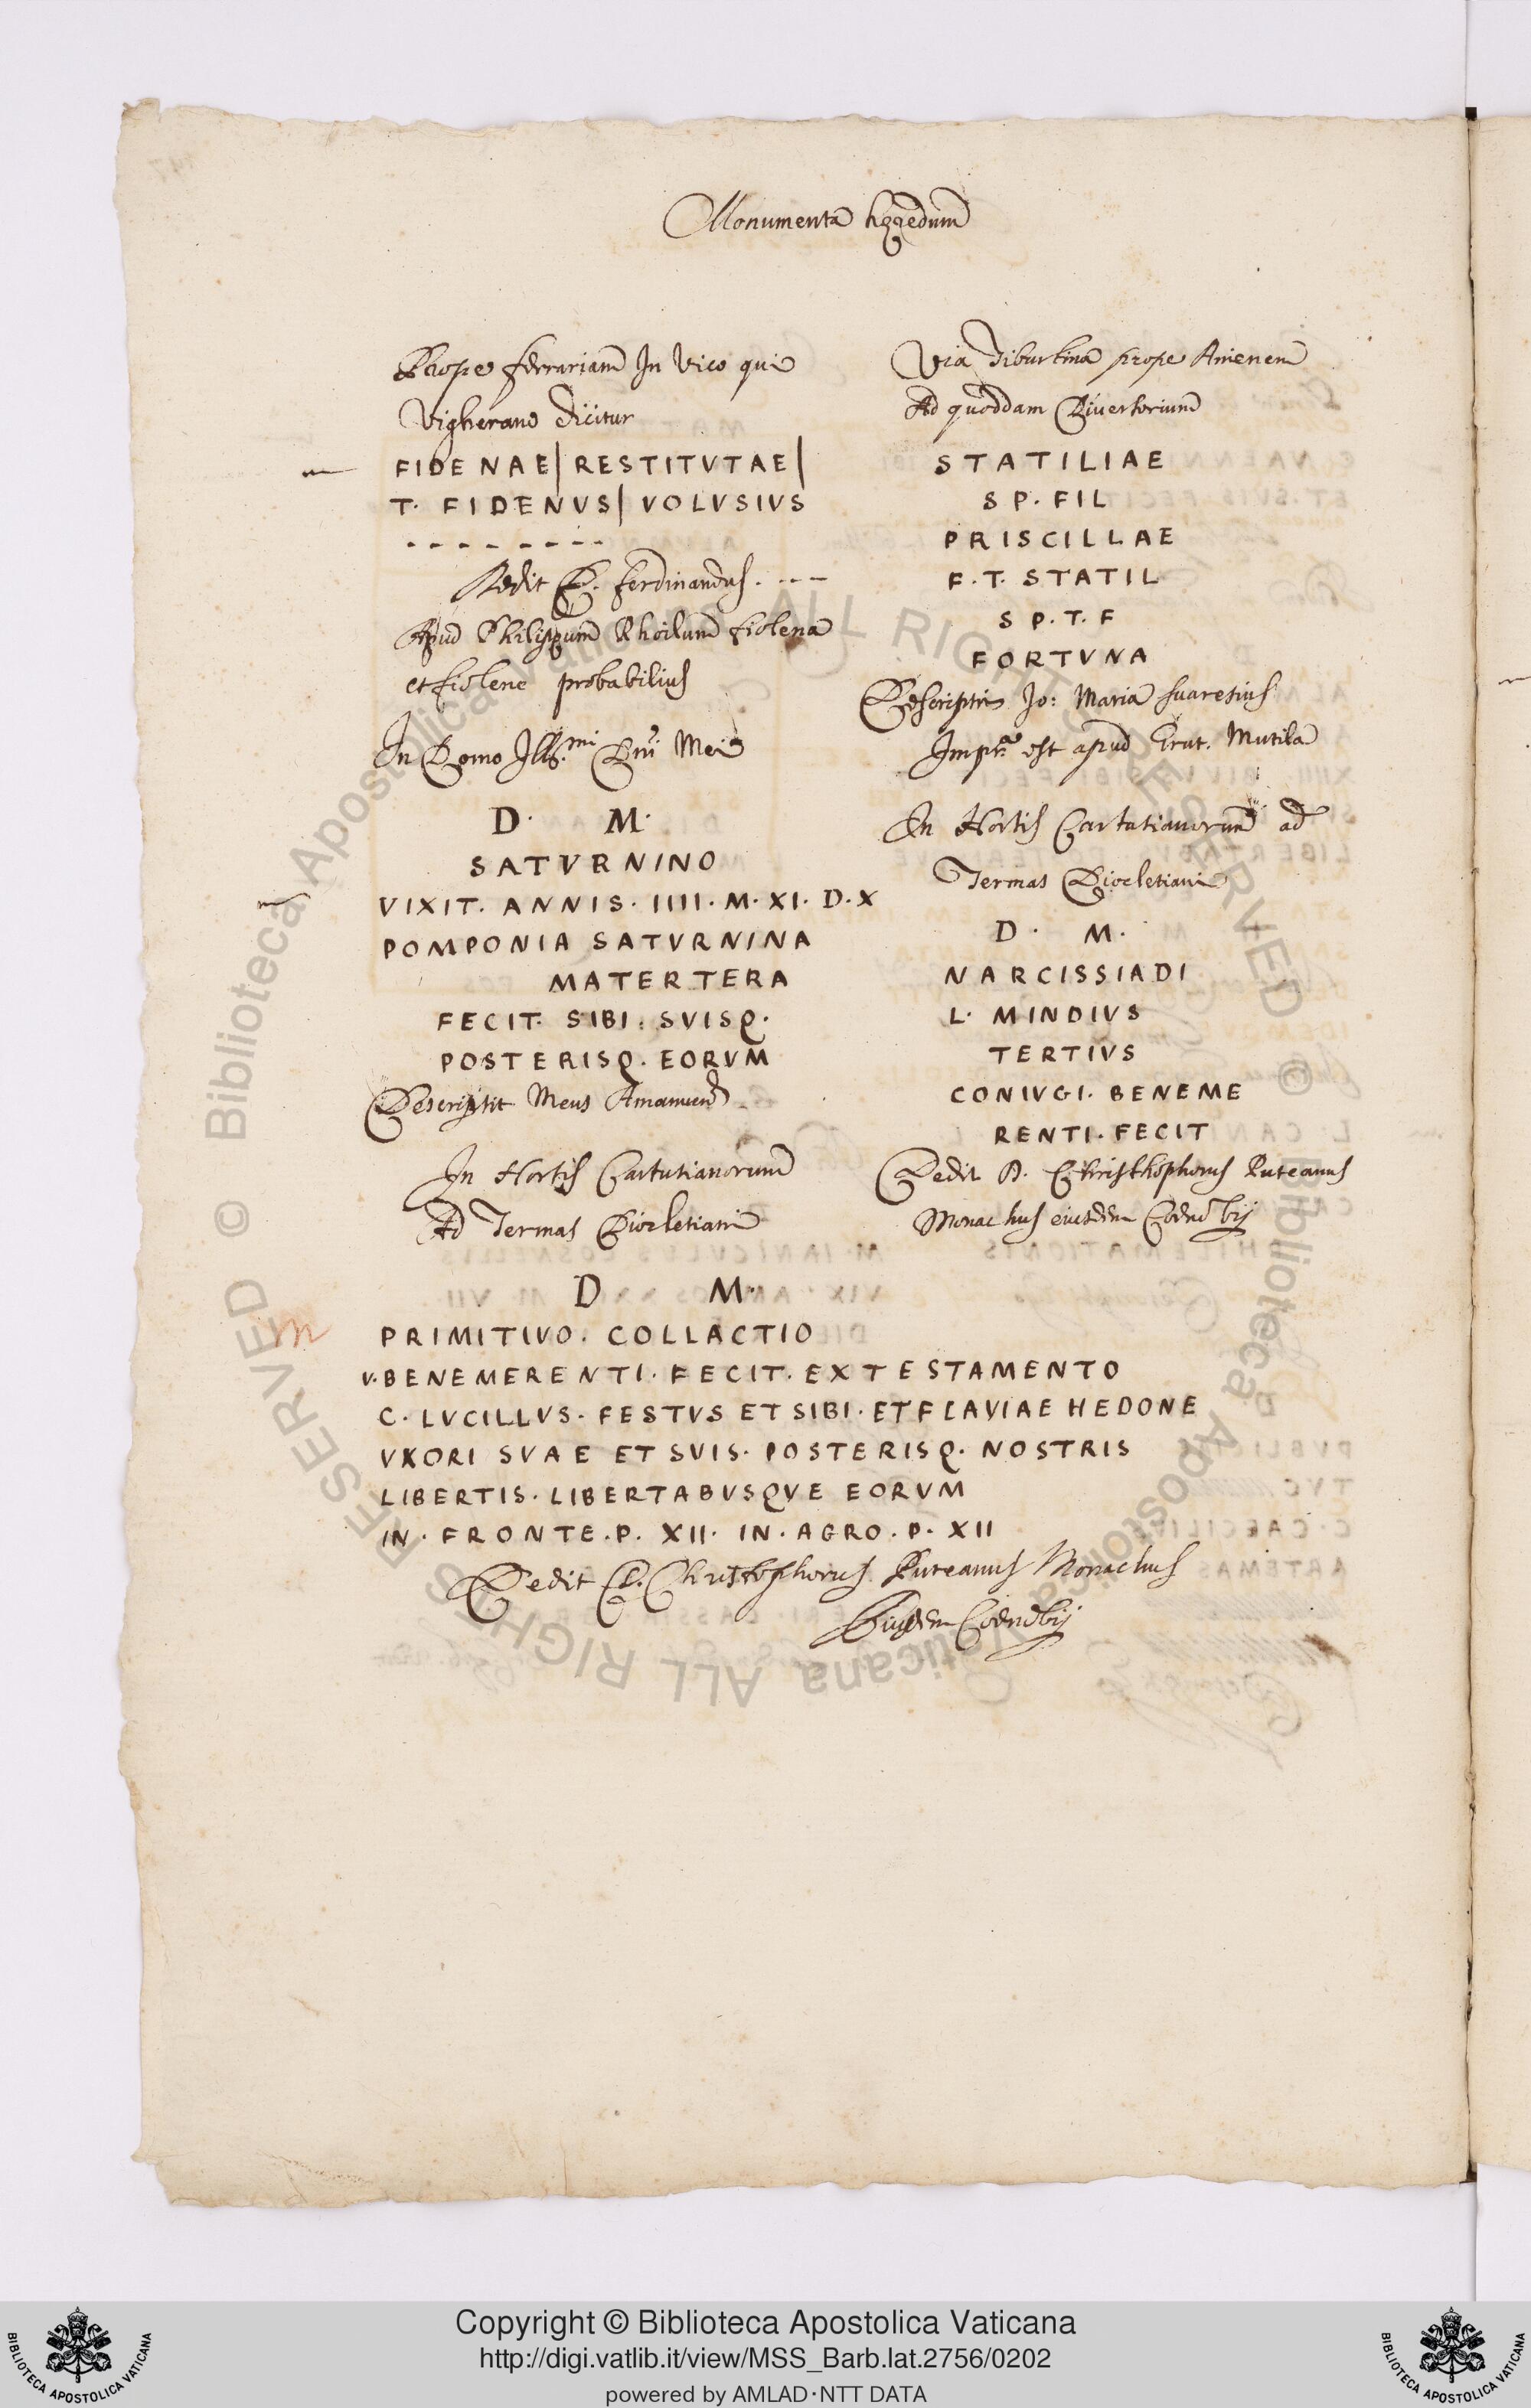 Monumenta hęredum
Prope ferrariam In Vico qui
Vigherano dicitur
FIDENAE| RESTITVTAE|
T. FIDENVS| VOLVSIVS
- - - - - - - -
Dedit D. Ferdinandus. - - -
Apud Philippum Rhoilum fiolena
et fiolene probabilius
In Domo Ill.mi Dni Mei
D. M.
SATVRNINO
VIXIT. ANNIS. IIII. M. XI. D. X
POMPONIA SATVRNINA
MATERTERA
FECIT. SIBI. SVISQ.
POSTERISQ. EORVM
Descripsit Meus Amanuens
In Hortis Cartutianorum
Ad Termas Diocletiani
Via Tiburtina prope Anienem
Ad quoddam Diuersorium
STATILIAE
SP. FIL
PRISCILLAE
F. T. STATIL
SP. T. F
FORTVNA
Jo: Maria suaresius
est apud Grut. Mutila
In Hortis Cartutianorum ad
Termas Diocletiani
D. M.
NARCISSIADI
L. MINDIVS
TERTIVS
CONIVGI. BENEME
RENTI. FECIT
Dedit D. Christhophorus Puteanus
Monachus eiusdem Coenobij
D M.
PRIMITIVO. COLLACTIO
V. BENEMERENTI. FECIT. EX TESTAMENTO
C. LVCILLVS. FESTVS ET SIBI. ET FLAVIAE HEDONE
VXORI SVAE ET SVIS. POSTERISQ. NOSTRIS
LIBERTIS. LIBERTABVSQVE EORVM
IN. FRONTE. P. XII. IN. AGRO. P. XII
Dedit D. Christophorus Puteanus Monachus
Eiusdem Coenobij
© Biblioteca Apostolica Vaticana ALL RIGHTS RESERVED
© Biblioteca Apostolica Vaticana ALL RIGHTS RESERVED
Copyright © Biblioteca Apostolica Vaticana
http://digi.vatlib.it/view/MSS_Barb.lat.2756/0202
powered by AMLAD·NTT DATA
BIBLIOTECA APOSTOLICA VATICANA
BIBLIOTECA APOSTOLICA VATICANA